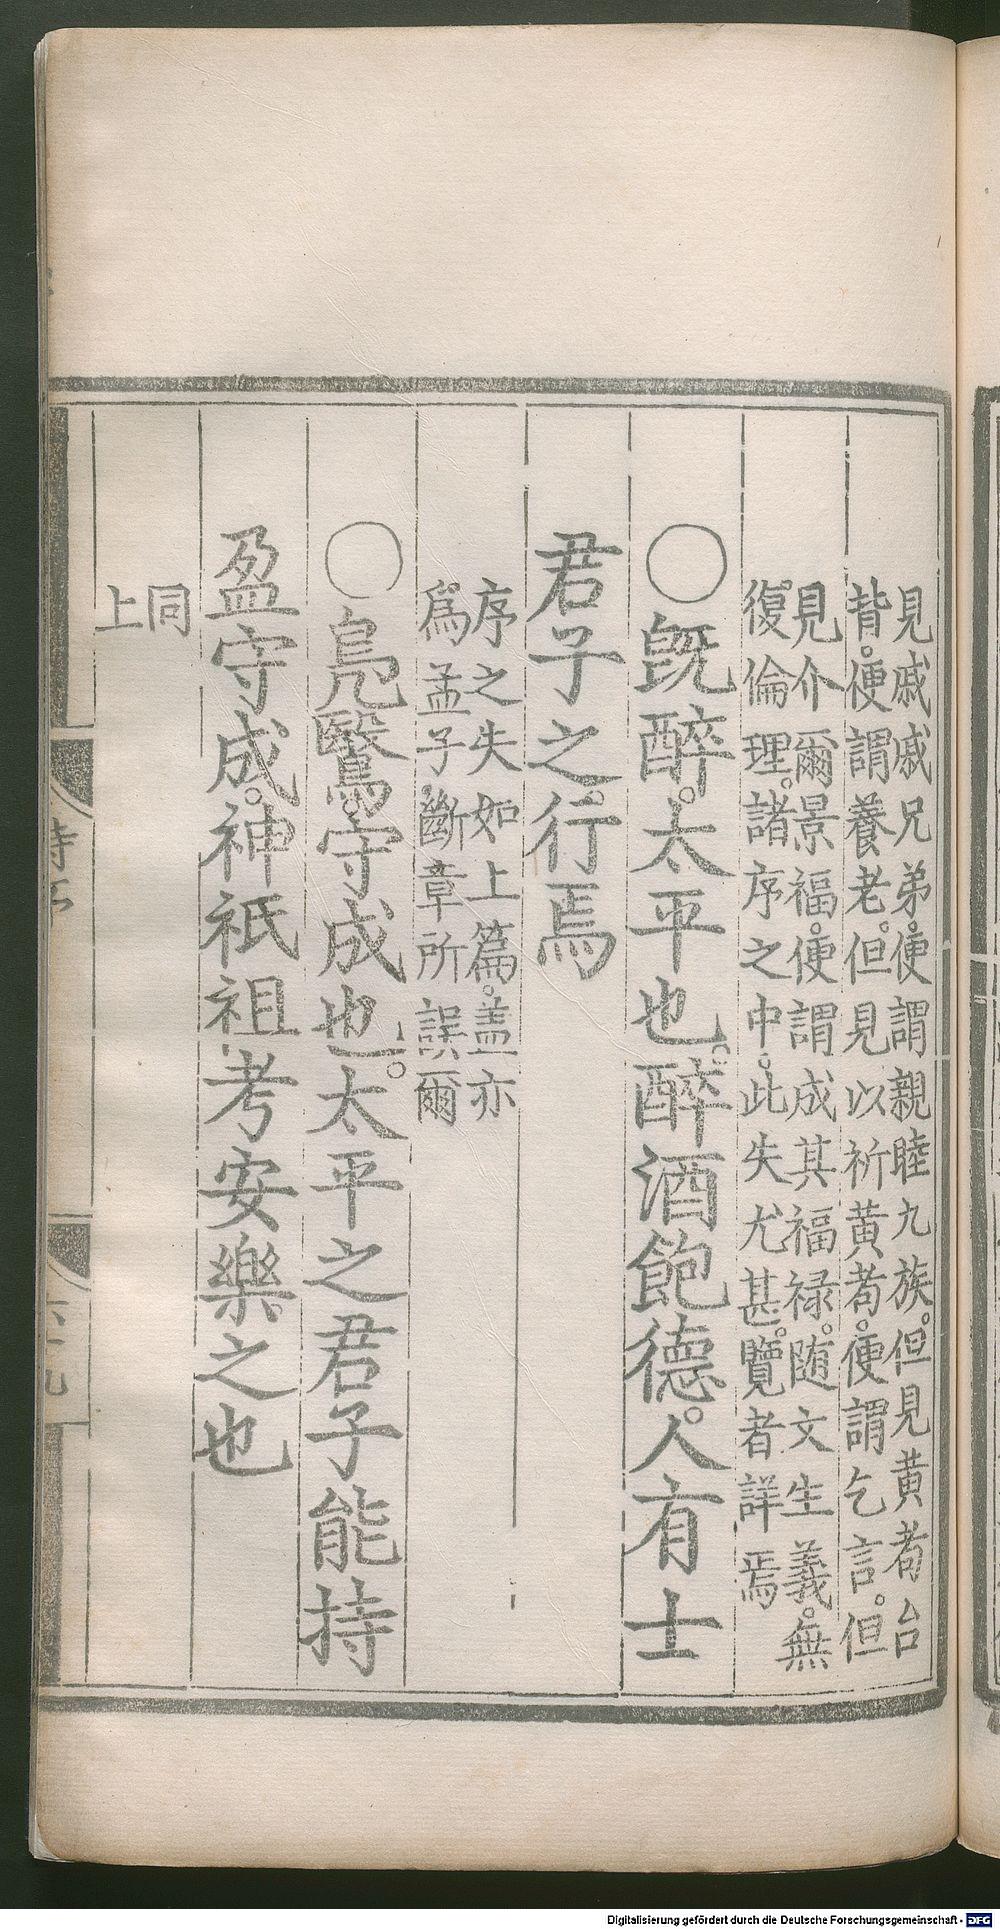 見戚戚兄弟便謂親睦九族。但見黃耇台
背。便謂養老。但見以祈黃耇。便謂乞言。但
見介爾景福。便謂成其福祿。隨文生義。無
復倫理。諸序之中。此失尤甚。覽者詳焉
○既醉。太平也。醉酒飽德。人有士
君子之行焉
序之失如上篇。蓋亦
爲孟子斷章所誤爾
○鳧鷖。守成也。太平之君子能持
盈守成。神祇祖考安樂之也
同
上
Digitalisierung gefördert durch die Deutsche Forschungsgemeinschaft - DFG